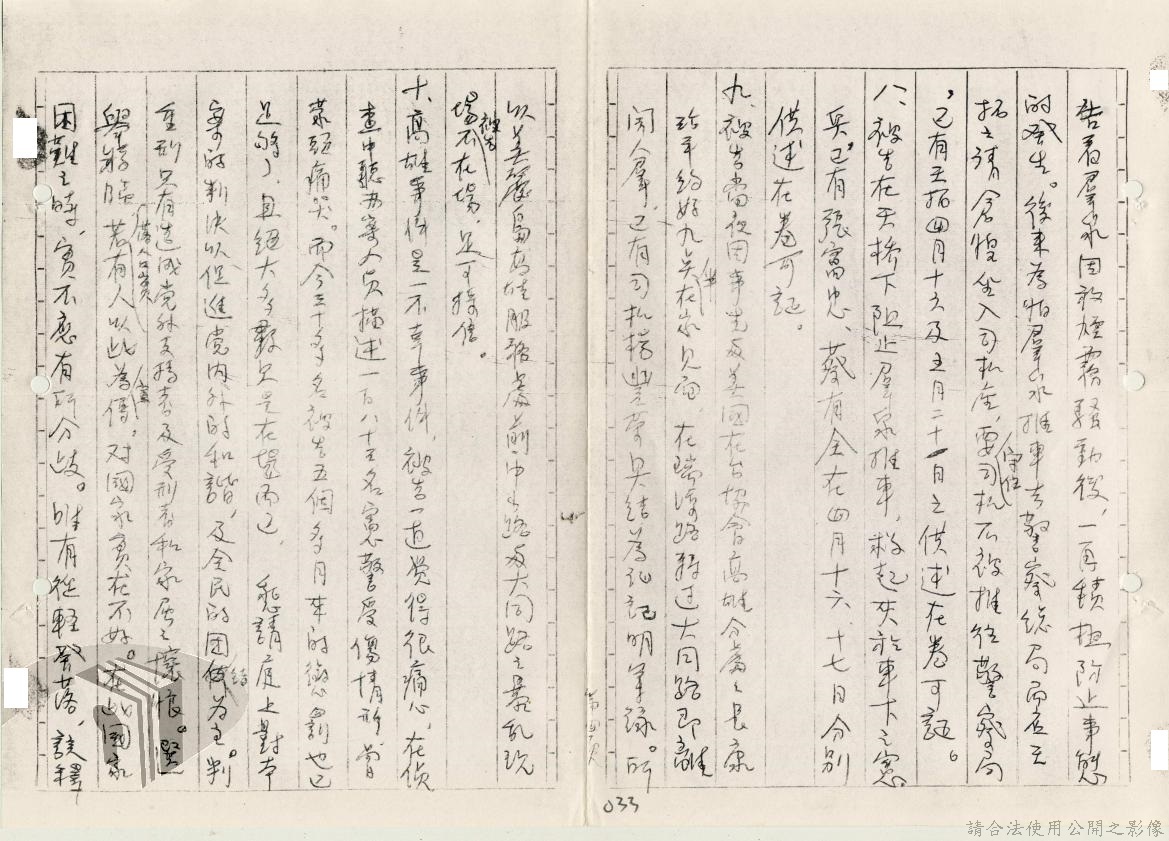 告看羣眾因敵煙霧騷動後，一再積極防止事態
的發生。後來為怕羣眾推車去警察總局而在王
拓之請倉惶坐入司机座，要司机守住不被推往警察局
，已有王拓四月十六及五月二十一日之供述在卷可証。
八、被告在天橋下阻止羣眾推車，救起夾於車下之憲
兵，已有張富忠、蔡有全在四月十六、十七日分別
供述在卷可証。
九、被告當夜因事先與美國在台協會高雄分處之長康
在家見面，在瑞源路轉過大同路即離
開人羣，已有司机結為証記明筆錄。所
以美麗島高雄服務處前中山路與大同路之暴亂現
場被告不在場，足可採信。
十、高雄事件是一不幸事件，被告一直覺得很痛心，在偵
查中聽办案人員描述一百八十五名憲警受傷情形曾
蒙頭痛哭。而今三十多名被告五個多月來的懲罰也已
足够了，且絕大多數只是在場而已，懇請庭上對本
案的判決以促進党內外的和諧，及全民的團結為主。判
重刑只有造成党外支持者及受刑者和家屬之懷恨。
若有人以此為傳，对國家實在不好。在此國家
困難之時，實不應有所分歧。唯有從輕發落，
033
請合法使用公開之影像